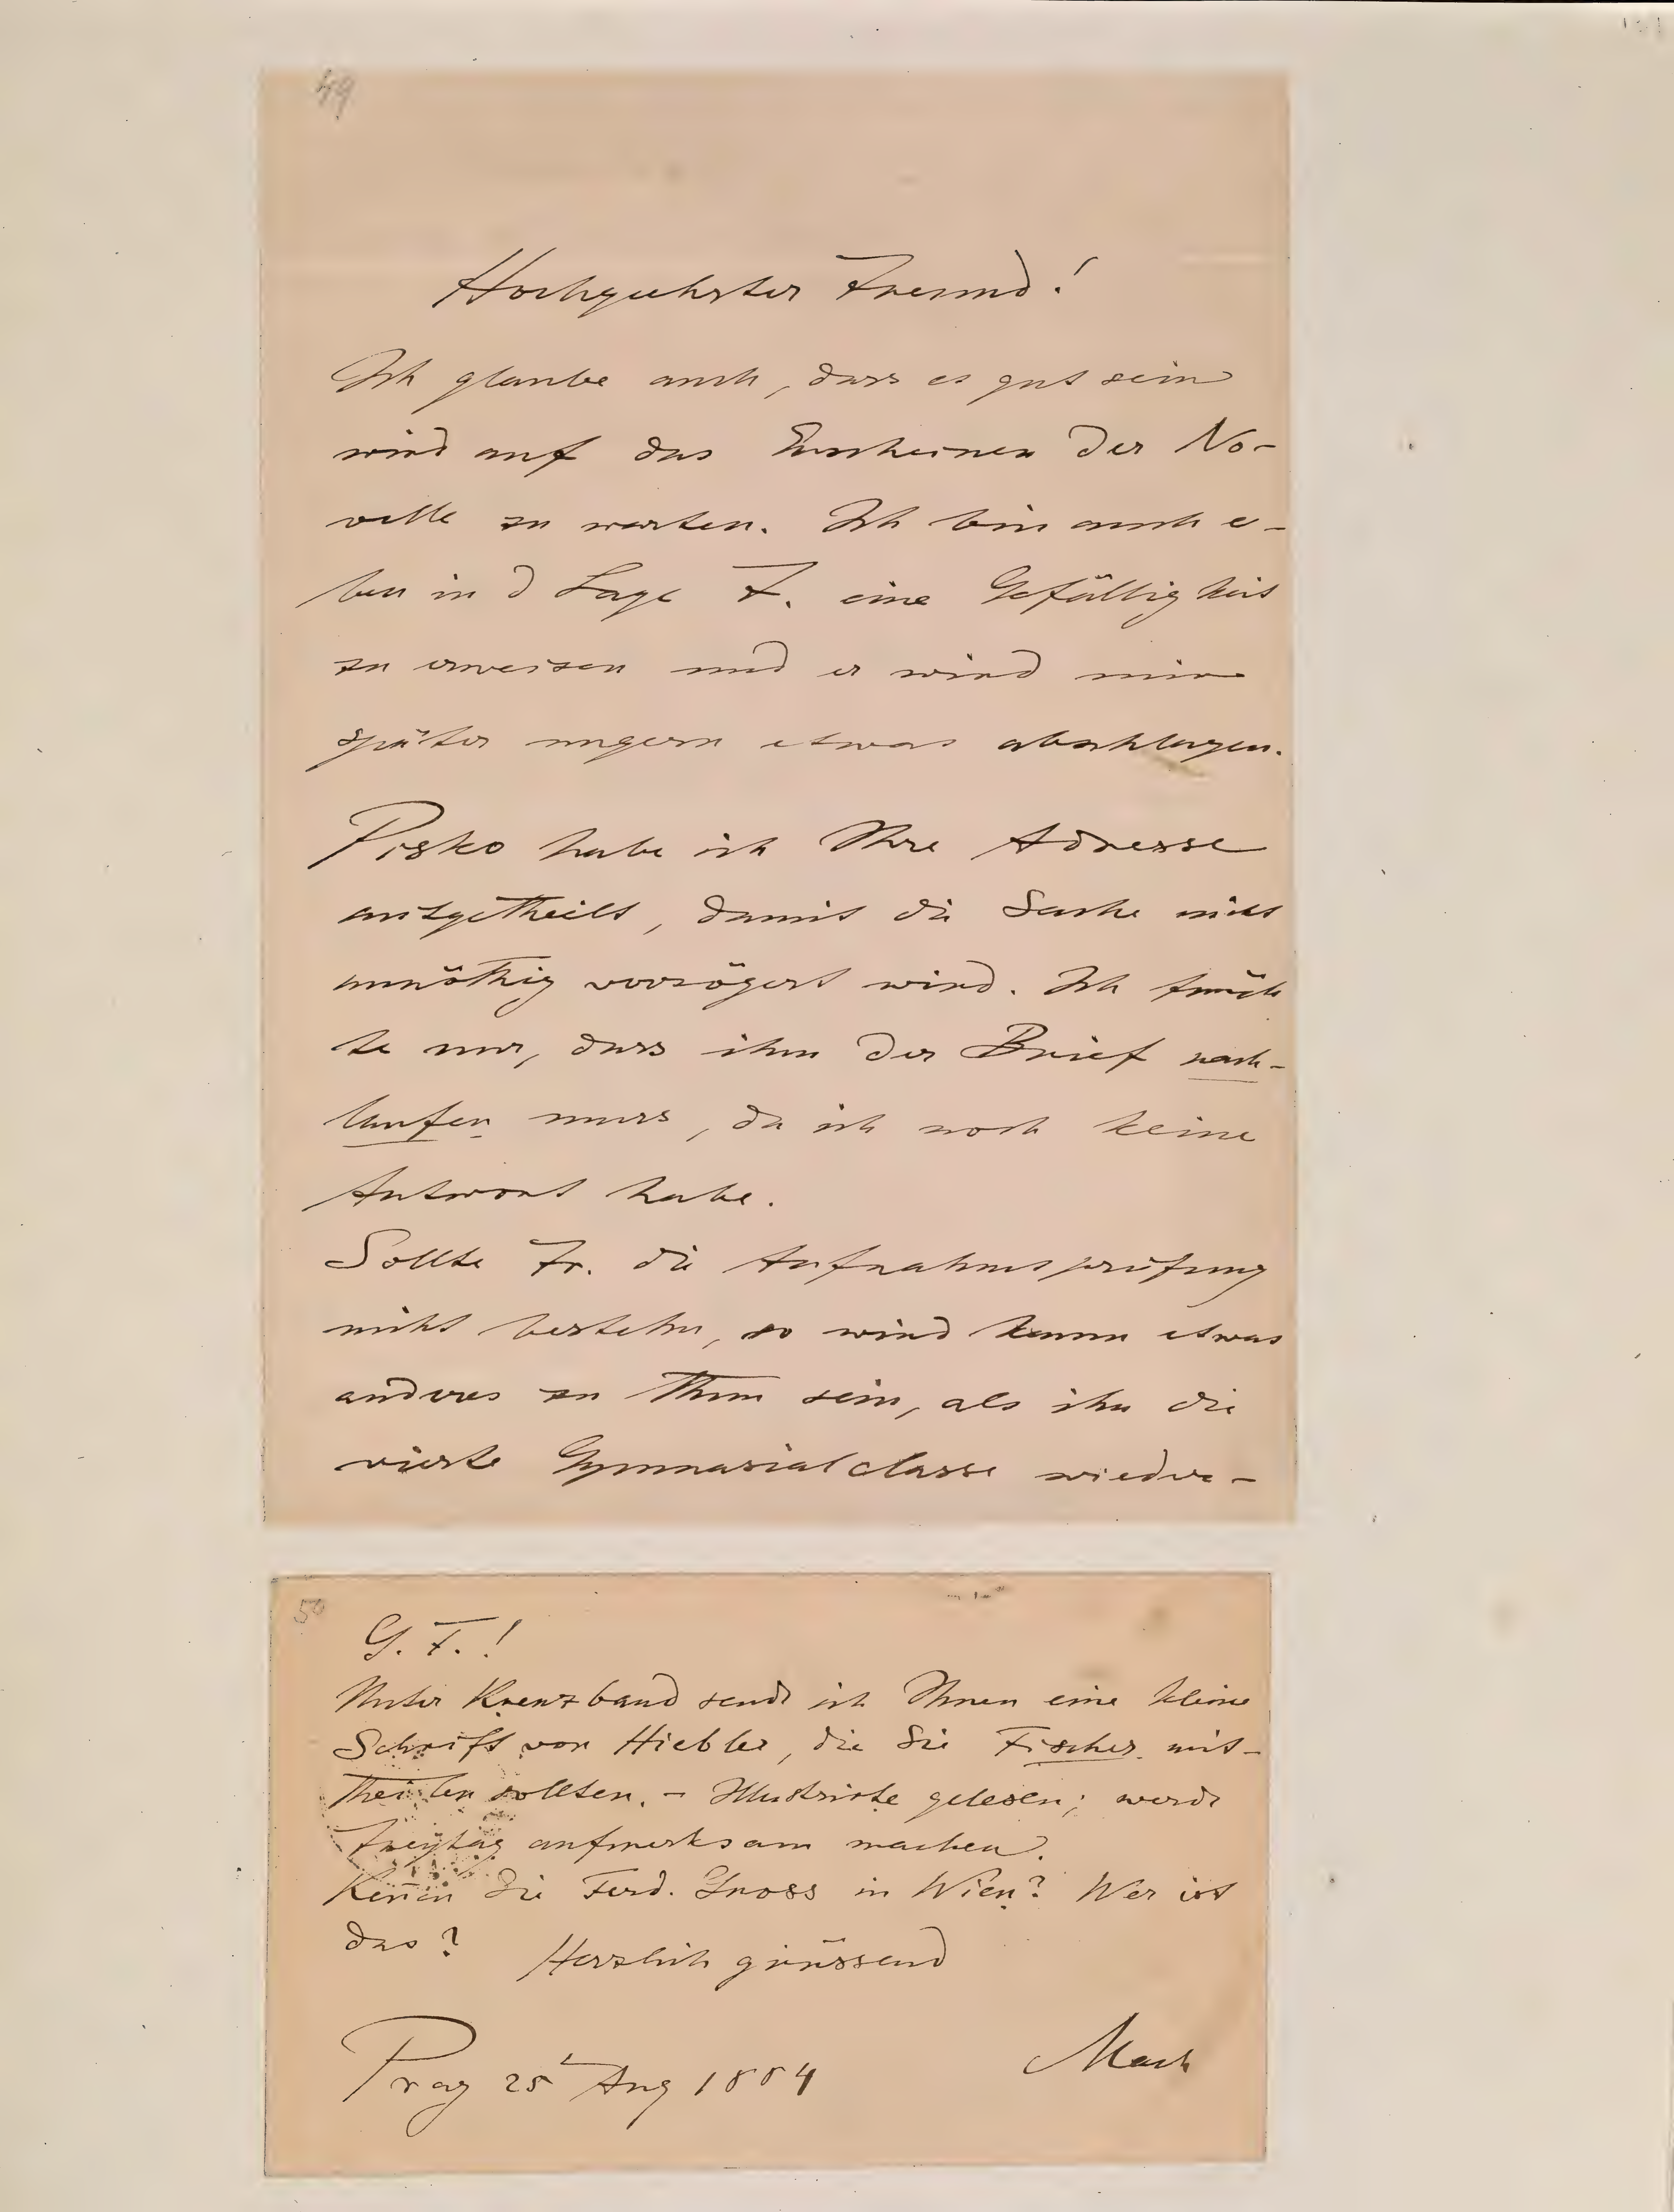 49
Hochgeehrter Freund!
Ich glaube auch, dass es gut sein
wird auf das Erscheinen der No-
velle zu warten. Ich bin auch e-
ben in d Lage F. eine Gefälligkeit
zu erweisen und er wird mir
später ungern etwas abschlagen.
Pisko habe ich Ihre Adresse
mitgetheilt, damit die Sache nicht
unnöthig verzögert wird. Ich fürch
te nur, dass ihm der Brief nach-
laufen muss, da ich noch keine
Antwort habe.
Sollte Fr. die Aufnahmsprüfung
nicht bestehn, so wird kaum etwas
anderes zu thun sein, als ihn die
vierte Gymnasialclasse wieder-
50
G. F.!
Unter Kreuzband sende ich Ihnen eine kleine
Schrift von Hiebler, die Sie Fischer mit-
theilen sollten. – Illustrirte gelesen; werde
Freytag aufmerksam machen.
Kennen Sie Ferd. in Wien? Wer ist
das?
Herzlich grüssend
Prag 25 Aug 1884
Mach